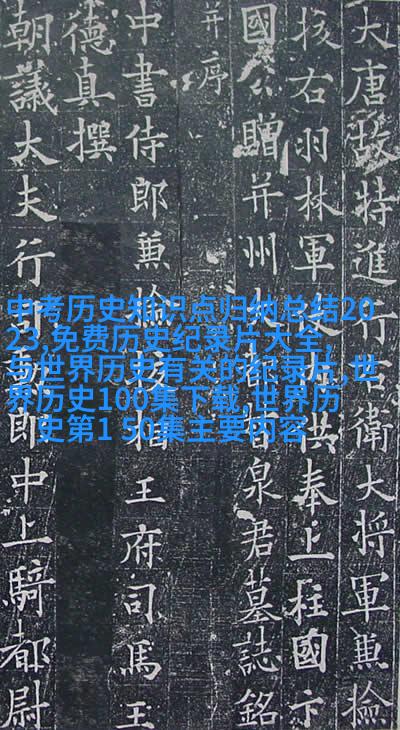 大唐故特進行右衛大將軍兼撿
挍右羽林軍仗內供奉上柱國卞
國公贈并州大都督泉君墓誌銘
并序
中書侍郎兼撿挍相王府司馬王
德真撰
朝議大夫行司勳郎中上騎都尉
中考历史知识点归纳总结20
23,免费历史纪录片大全,
与世界历史有关的纪录片,世
界历史100集下载,世界历
史第1 50集主要内容